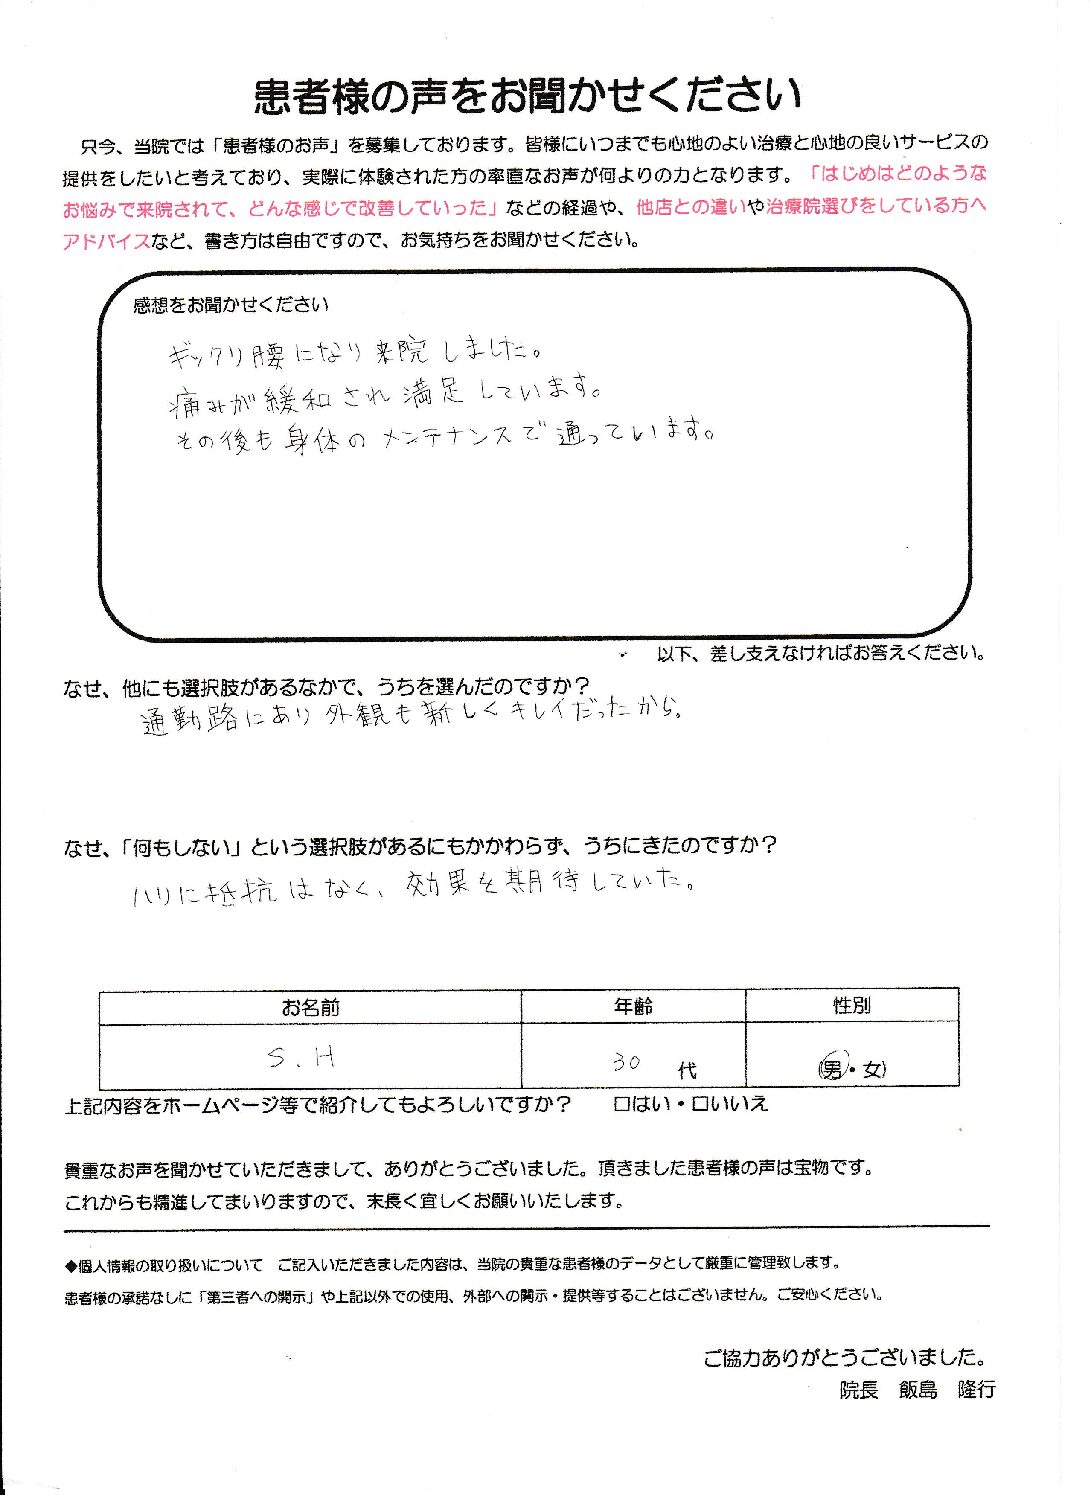 患者様の声をお聞かせください
只今、当院では「患者様のお声」を募集しております。皆様にいつまでも心地のよい治療と心地の良いサービスの
提供をしたいと考えており、実際に体験された方の率直なお声が何よりの力となります。「はじめはどのような
お悩みで来院されて、どんな感じで改善していった」などの経過や、他店との違いや治療院選びをしている方へ
アドバイスなど、書き方は自由ですので、お気持ちをお聞かせください。
感想をお聞かせください
ギックリ腰になり来院しました。
痛みが緩和され満足しています。
その後も身体のメンテナンスで通っています。
以下、差し支えなければお答えください。
なぜ、他にも選択肢があるなかで、うちを選んだのですか？
通勤路にあり外観も新しくキレイだったから。
なぜ、「何もしない」という選択肢があるにもかかわらず、うちにきたのですか？
ハリに抵抗はなく、効果を期待していた。
お名前 年齢 性別
S.H 30 代 (男・女)
上記内容をホームページ等で紹介してもよろしいですか？ □はい・□いいえ
貴重なお声を聞かせていただきまして、ありがとうございました。頂きました患者様の声は宝物です。
これからも精進してまいりますので、末長く宜しくお願いいたします。
◆個人情報の取り扱いについて ご記入いただきました内容は、当院の貴重な患者様のデータとして厳重に管理致します。
患者様の承諾なしに「第三者への開示」や上記以外での使用、外部への開示・提供等することはございません。ご安心ください。
ご協力ありがとうございました。
院長 飯島 隆行